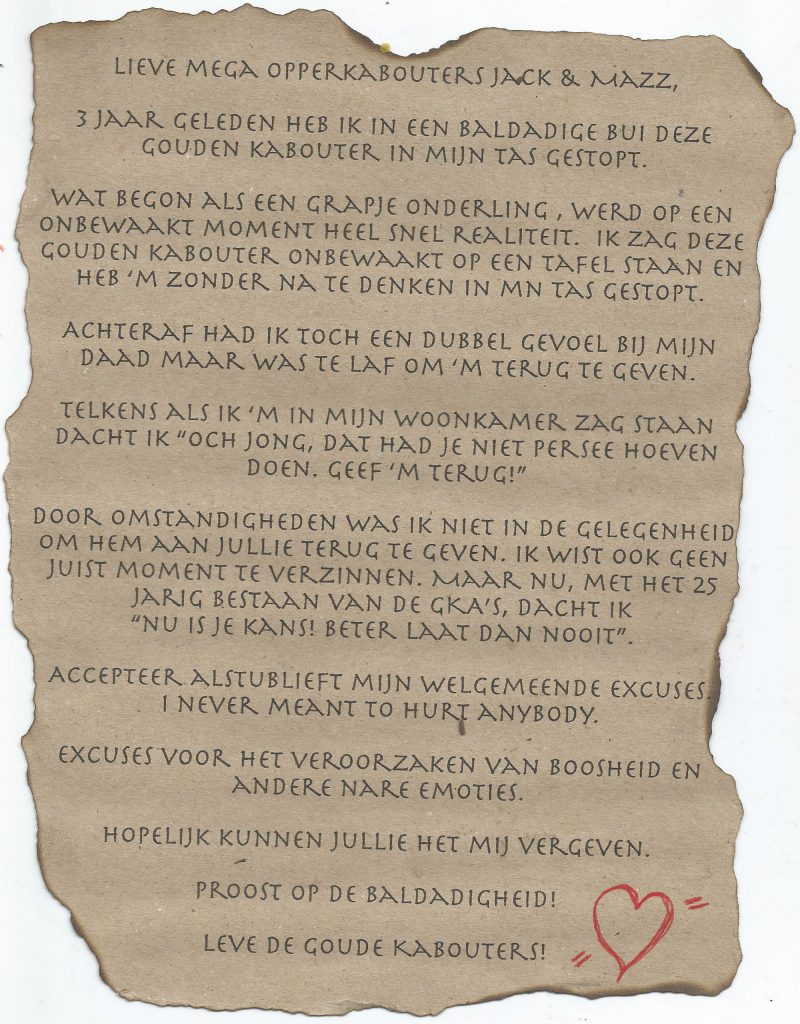 LIEVE MEGA OPPERKABOUTERS JACK & MAZZ,
3 JAAR GELEDEN HEB IK IN EEN BALDADIGE BUI DEZE
GOUDEN KABOUTER IN MIJN TAS GESTOPT.
WAT BEGON ALS EEN GRAPJE ONDERLING , WERD OP EEN
ONBEWAAKT MOMENT HEEL SNEL REALITEIT. IK ZAG DEZE
GOUDEN KABOUTER ONBEWAAKT OP EEN TAFEL STAAN EN
HEB 'M ZONDER NA TE DENKEN IN MN TAS GESTOPT.
ACHTERAF HAD IK TOCH EEN DUBBEL GEVOEL BIJ MIJN
DAAD MAAR WAS TE LAF OM 'M TERUG TE GEVEN.
TELKENS ALS IK 'M IN MIJN WOONKAMER ZAG STAAN
DACHT IK "OCH JONG, DAT HAD JE NIET PERSEE HOEVEN
DOEN. GEEF 'M TERUG!"
DOOR OMSTANDIGHEDEN WAS IK NIET IN DE GELEGENHEID
OM HEM AAN JULLIE TERUG TE GEVEN. IK WIST OOK GEEN
JUIST MOMENT TE VERZINNEN. MAAR NU, MET HET 25
JARIG BESTAAN VAN DE GKA'S, DACHT IK
"NU IS JE KANS! BETER LAAT DAN NOOIT".
ACCEPTEER ALSTUBLIEFT MIJN WELGEMEENDE EXCUSES.
I NEVER MEANT TO HURT ANYBODY.
EXCUSES VOOR HET VEROORZAKEN VAN BOOSHEID EN
ANDERE NARE EMOTIES.
HOPELIJK KUNNEN JULLIE HET MIJ VERGEVEN.
PROOST OP DE BALDADIGHEID!
LEVE DE GOUDE KABOUTERS!